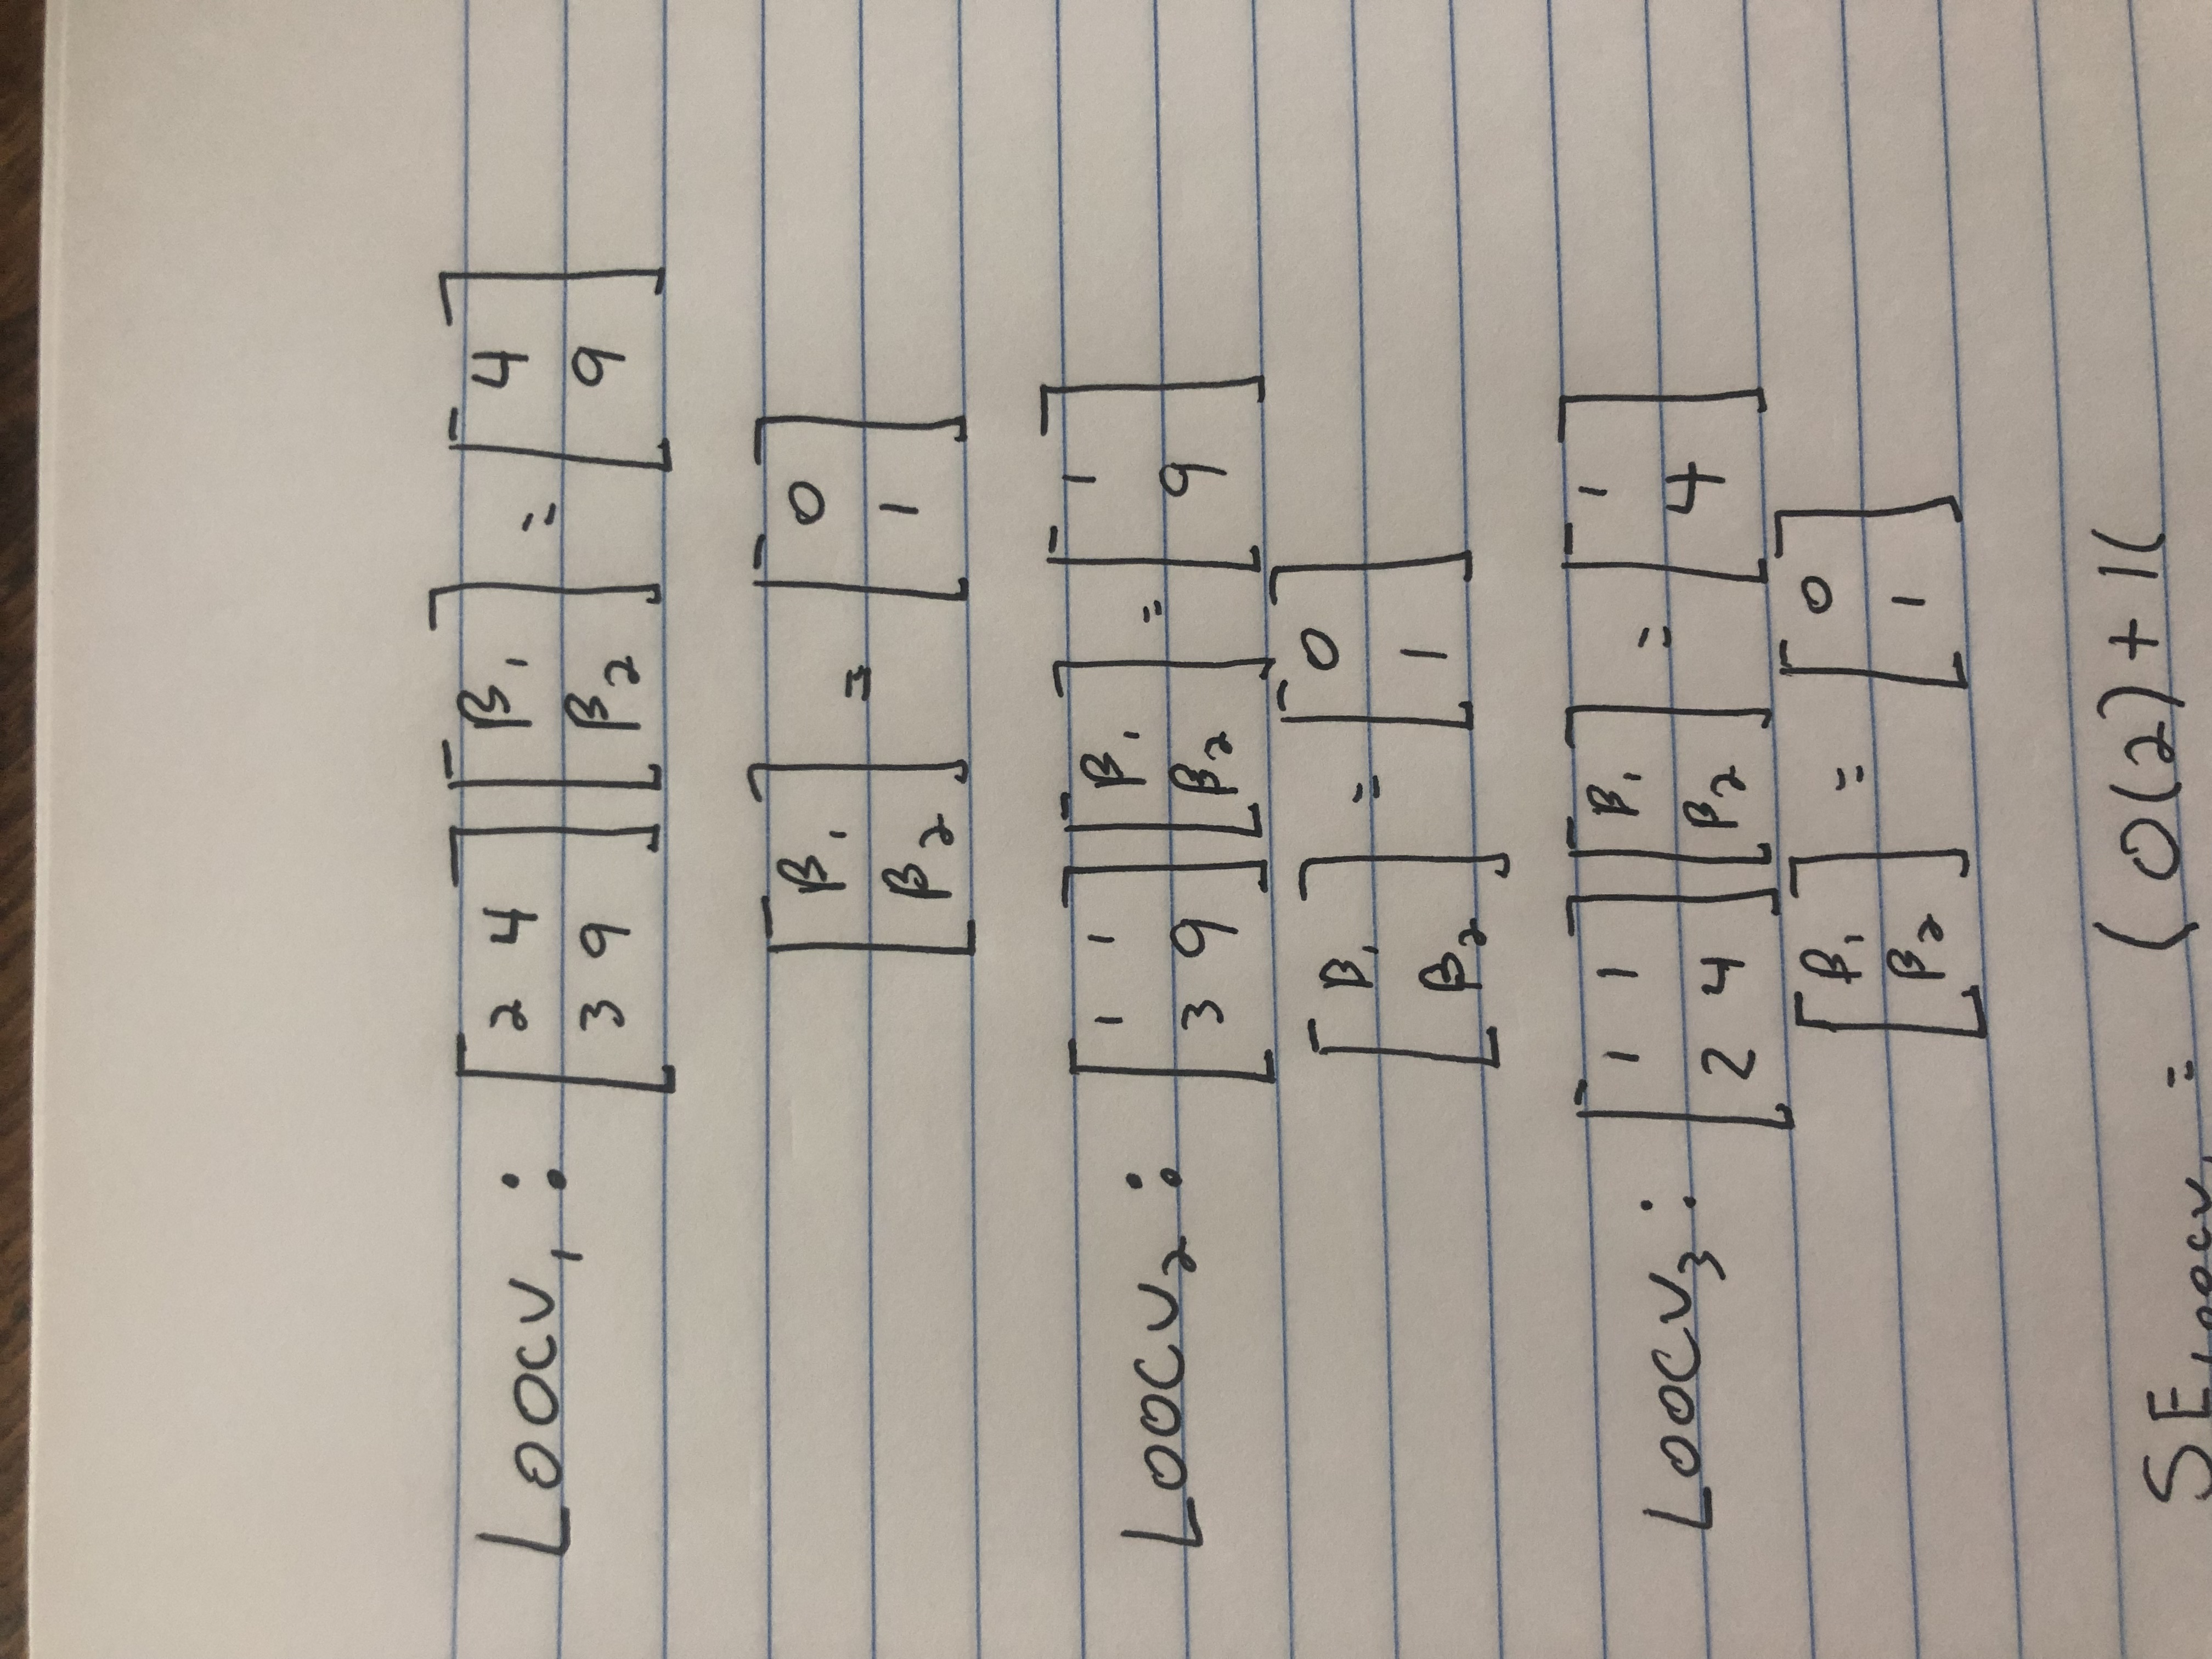 LOOCV₁ : [2 4; 3 9] [β₁; β₂] = [4; 9]
[β₁; β₂] = [0; 1]
LOOCV₂ : [1 1; 3 9] [β₁; β₂] = [1; 9]
[β₁; β₂] = [0; 1]
LOOCV₃ : [1 1; 2 4] [β₁; β₂] = [1; 4]
[β₁; β₂] = [0; 1]
SE LOOCV₁ = (0(2) + 1(